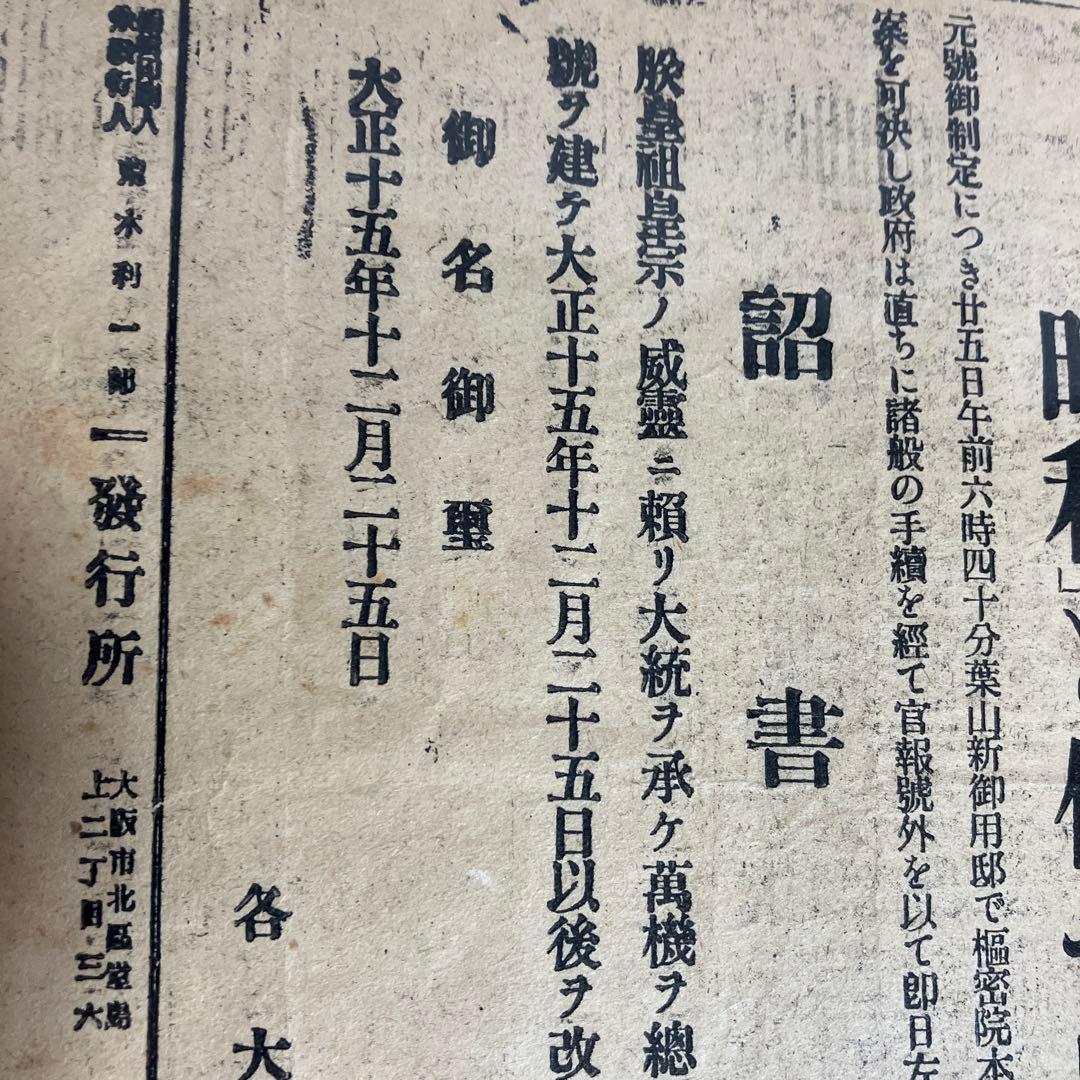 昭和
元號御制定につき廿五日午前六時四十分葉山新御用邸で樞密院本
案を可決し政府は直ちに諸般の手續を經て官報號外を以て卽日左
詔書
朕皇祖皇宗ノ威靈ニ賴リ大統ヲ承ケ萬機ヲ總
號ヲ建テ大正十五年十二月二十五日以後ヲ改
御名御璽
大正十五年十二月二十五日
各大
利一郎
發行所
大阪市北區堂島
上二丁目三六